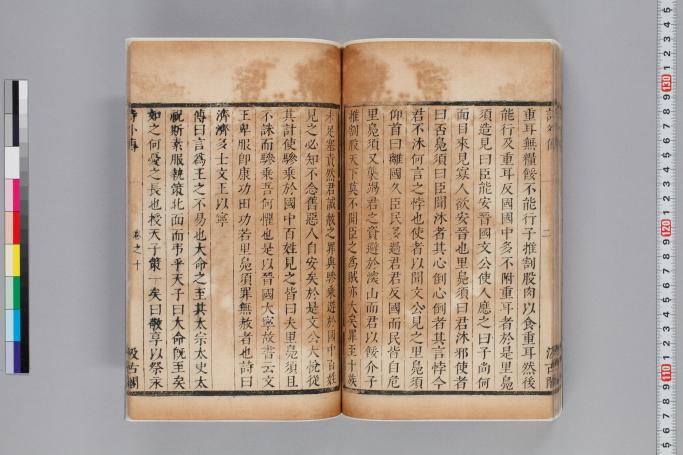 重耳無糧餒不能行子推割股肉以食重耳然後
能行及重耳反國國中多不附重耳者於是里鳧
須造見曰臣能安晉國文公使人應之曰子尚何
面目來見寡人欲安晉也里鳧須曰君沐邪使者
曰否鳧須曰臣聞沐者其心倒心倒者其言悖今
君不沐何言之悖也使者以聞文公見之里鳧須
仰首曰離國久臣民多過君君反國而民皆自危
里鳧須又襲竭君之資避於深山而君以餒介子
推割股天下莫不聞臣之為賊亦大矣罪至十族
未足塞責然君誠赦之罪與驂乘遊於國中百姓
見之必知不念舊惡人自安矣於是文公大悅從
其計使驂乘於國中百姓見之皆曰夫里鳧須且
不誅而驂乘吾何懼也是以晉國大寧故書云文
王卑服即康功田功若里鳧須罪無赦者也詩曰
濟濟多士文王以寧
傳曰言為王之不易也大命之至其太宗太史太
祝斯素服執策北面而弔乎天子曰大命旣至矣
如之何憂之長也授天子策一矣曰敬享以祭永
卷之十
汲古閣